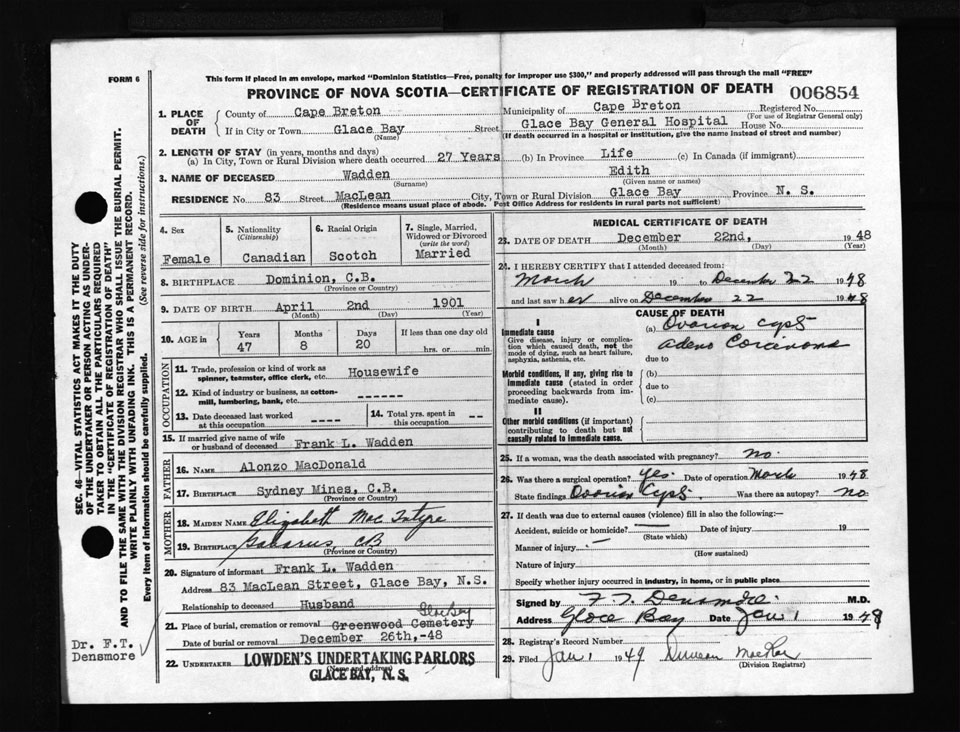 FORM 6
This form if placed in an envelope, marked "Dominion Statistics—Free, penalty for improper use $300," and properly addressed will pass through the mail "FREE"
PROVINCE OF NOVA SCOTIA—CERTIFICATE OF REGISTRATION OF DEATH 006854
1. PLACE OF DEATH
County of Cape Breton Municipality of Cape Breton Registered No.
(For use of Registrar General only)
If in City or Town Glace Bay Street Glace Bay General Hospital House No.
(Name) (If death occurred in a hospital or institution, give the name instead of street and number)
2. LENGTH OF STAY (in years, months and days)
(a) In City, Town or Rural Division where death occurred 27 Years (b) In Province Life (c) In Canada (if immigrant)
3. NAME OF DECEASED Wadden Edith
(Surname) (Given name or names)
RESIDENCE No. 83 Street MacLean City, Town or Rural Division Glace Bay Province N. S.
(Residence means usual place of abode. Post Office Address for residents in rural parts not sufficient)
4. Sex
Female
5. Nationality
(Citizenship)
Canadian
6. Racial Origin
Scotch
7. Single, Married, Widowed or Divorced
(write the word)
Married
8. BIRTHPLACE Dominion, C.B.
(Province or Country)
9. DATE OF BIRTH April 2nd 1901
(Month) (Day) (Year)
10. AGE in
Years Months Days If less than one day old
47 8 20 hrs. or min.
OCCUPATION
11. Trade, profession or kind of work as spinner, teamster, office clerk, etc. Housewife
12. Kind of industry or business, as cotton-mill, lumbering, bank, etc. ------
13. Date deceased last worked at this occupation ----
14. Total yrs. spent in this occupation --
15. If married give name of wife or husband of deceased Frank L. Wadden
FATHER
16. NAME Alonzo MacDonald
17. BIRTHPLACE Sydney Mines, C.B.
(Province or Country)
MOTHER
18. MAIDEN NAME Elizabeth MacIntyre
19. BIRTHPLACE Gabarus CB
(Province or Country)
20. Signature of informant Frank L. Wadden
Address 83 MacLean Street, Glace Bay, N.S.
Relationship to deceased Husband
Glace Bay
21. Place of burial, cremation or removal Greenwood Cemetery
Date of burial or removal December 26th,-48
22. UNDERTAKER LOWDEN'S UNDERTAKING PARLORS
(Name and address)
GLACE BAY, N. S.
MEDICAL CERTIFICATE OF DEATH
23. DATE OF DEATH December 22nd, 1948
(Month) (Day) (Year)
24. I HEREBY CERTIFY that I attended deceased from:
March 19 to December 22 1948
and last saw her alive on December 22 1948
CAUSE OF DEATH
I
Immediate cause
Give disease, injury or complication which caused death, not the mode of dying, such as heart failure, asphyxia, asthenia, etc.
(a) Ovarian cyst
adeno Carcinoma
due to
Morbid conditions, if any, giving rise to immediate cause (stated in order proceeding backwards from immediate cause).
(b)
due to
(c)
II
Other morbid conditions (if important) contributing to death but not causally related to immediate cause.
25. If a woman, was the death associated with pregnancy? no.
26. Was there a surgical operation? yes. Date of operation March 1948
State findings Ovarian Cyst. Was there an autopsy? no
27. If death was due to external causes (violence) fill in also the following:—
Accident, suicide or homicide? — Date of injury 19
(State which)
Manner of injury —
(How sustained)
Nature of injury
Specify whether injury occurred in industry, in home, or in public place
Signed by F. T. Densmore M.D.
Address Glace Bay Date Jan 1 1948
28. Registrar's Record Number
29. Filed Jan 1 1949 Duncan MacRae
(Division Registrar)
SEC. 46—VITAL STATISTICS ACT MAKES IT THE DUTY
OF THE UNDERTAKER OR PERSON ACTING AS UNDER-
TAKER TO OBTAIN ALL THE PARTICULARS REQUIRED
IN THE "CERTIFICATE OF REGISTRATION OF DEATH"
AND TO FILE THE SAME WITH THE DIVISION REGISTRAR WHO SHALL ISSUE THE BURIAL PERMIT.
WRITE PLAINLY WITH UNFADING INK. THIS IS A PERMANENT RECORD.
Every item of information should be carefully supplied. (See reverse side for instructions.)
Dr. F.T.
Densmore